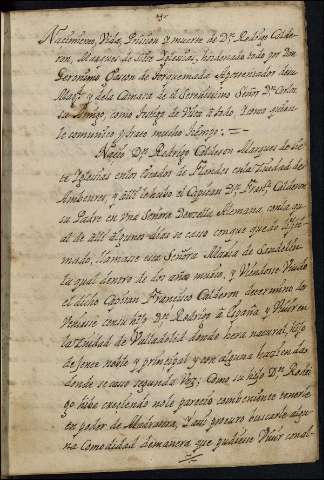 Nacimiento, Vida, Prission y muerte de Dn. Rodrigo Calde-
ron, Marques de Siete Yglesias, hordenado todo por Don
Geronimo Gascon de Torquemada Aposentador de su
Magd. y de la Camara de el Serenissimo Señor Dn. Carlos
su Amigo, como testigo de Vista a todo, y como quien
le comunicò, y tratò mucho tiempo; =
Naciò Dn. Rodrigo Calderon Marques de Sie-
te Yglesias en los Estados de Flandes en la Ciudad de
Amberes, y alli lo hubo el Capitan Dn. Franco. Calderon
su Padre en una Señora Donzella Alemana con la qu
al de alli algunos dias se caso con que quedo lexiti-
mado, llamose esta Señora Maria de Sandelin
la qual dentro de dos años murio, y viendose Viudo
el dicho Capitan Francisco Calderon, determino de
venirse con su hijo Dn. Rodrigo à España, y vivir en
la Ciudad de Valladolid donde hera natural, hijo
de Jente noble y principal y con alguna hazienda
donde se caso segunda vez; Como su hijo Dn. Rodri-
go hiba creciendo nole pareciò combeniente tenerle
en poder de Madrastra, y assi procuro buscarle algu-
na Comodidad de manera que pudiesse vivir con al-